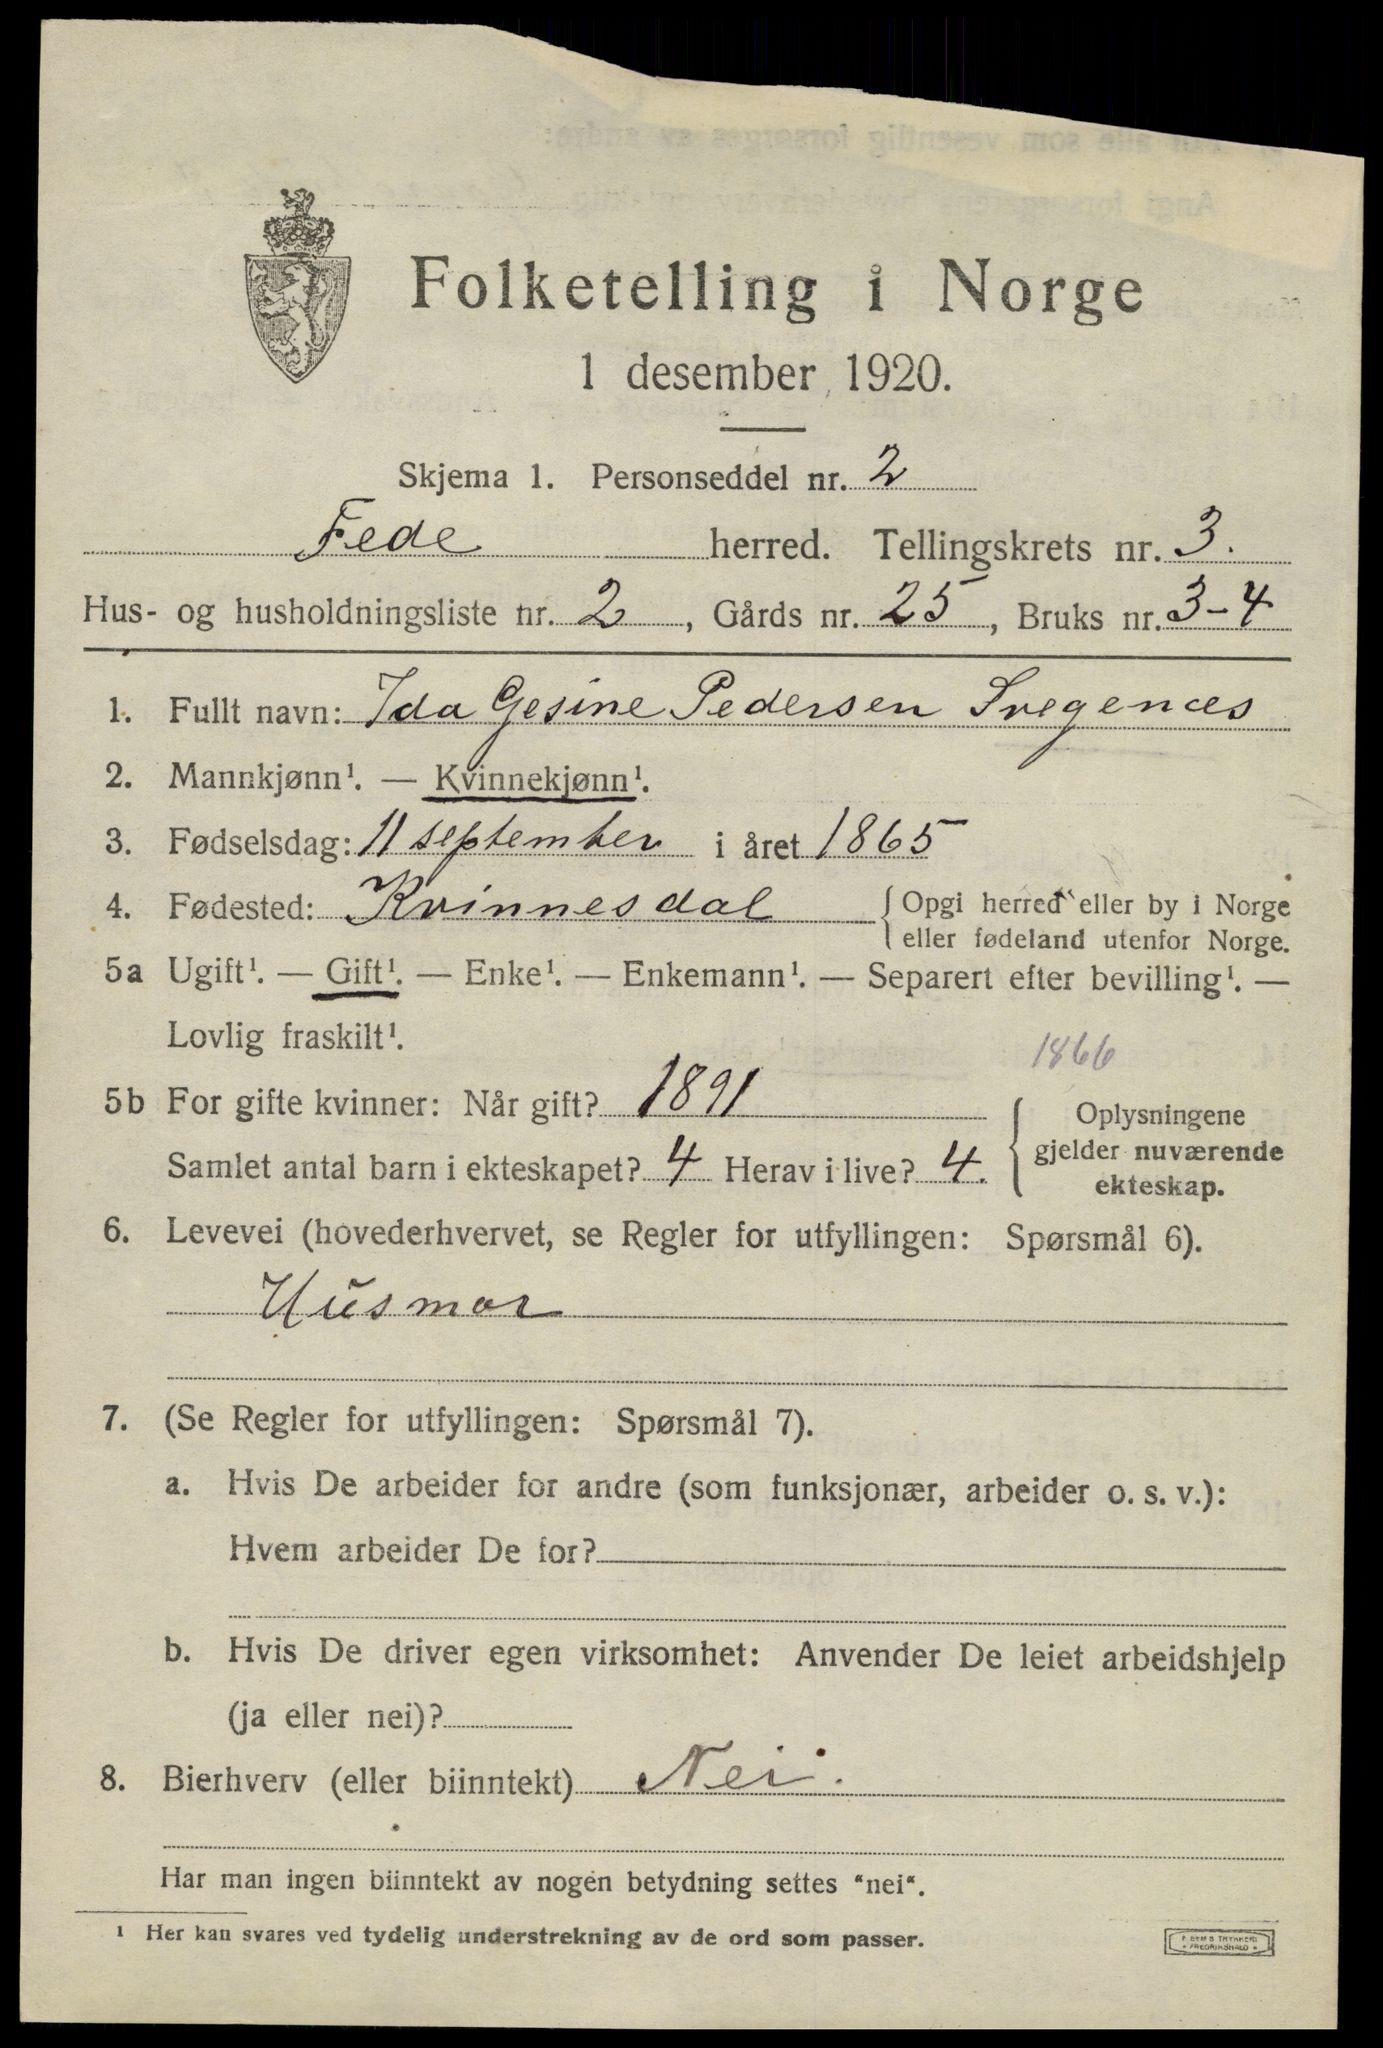 Folketelling i Norge
1 desember 1920.
Skjema 1. Personseddel nr. 2
Fede herred. Tellingskrets nr. 3.
Hus- og husholdningsliste nr. 2, Gårds nr. 25, Bruks nr. 3-4
1. Fullt navn: Ida Gesine Pedersen Svegenæs
2. Mannkjønn¹. — Kvinnekjønn¹.
3. Fødselsdag: 11 september i året 1865
4. Fødested: Kvinnesdal { Opgi herred eller by i Norge
eller fødeland utenfor Norge.
5a Ugift¹. — Gift¹. — Enke¹. — Enkemann¹. — Separert efter bevilling¹. —
Lovlig fraskilt¹.
1866
5b For gifte kvinner: Når gift? 1891
Samlet antal barn i ekteskapet? 4 Herav i live? 4.
{ Oplysningene
gjelder nuværende
ekteskap.
6. Levevei (hovederhvervet, se Regler for utfyllingen: Spørsmål 6).
Husmor
7. (Se Regler for utfyllingen: Spørsmål 7).
a. Hvis De arbeider for andre (som funksjonær, arbeider o. s. v.):
Hvem arbeider De for?
b. Hvis De driver egen virksomhet: Anvender De leiet arbeidshjelp
(ja eller nei)?
8. Bierhverv (eller biinntekt) Nei.
Har man ingen biinntekt av nogen betydning settes "nei".
¹ Her kan svares ved tydelig understrekning av de ord som passer.
TRYKKERI
FREDRIKSHALD